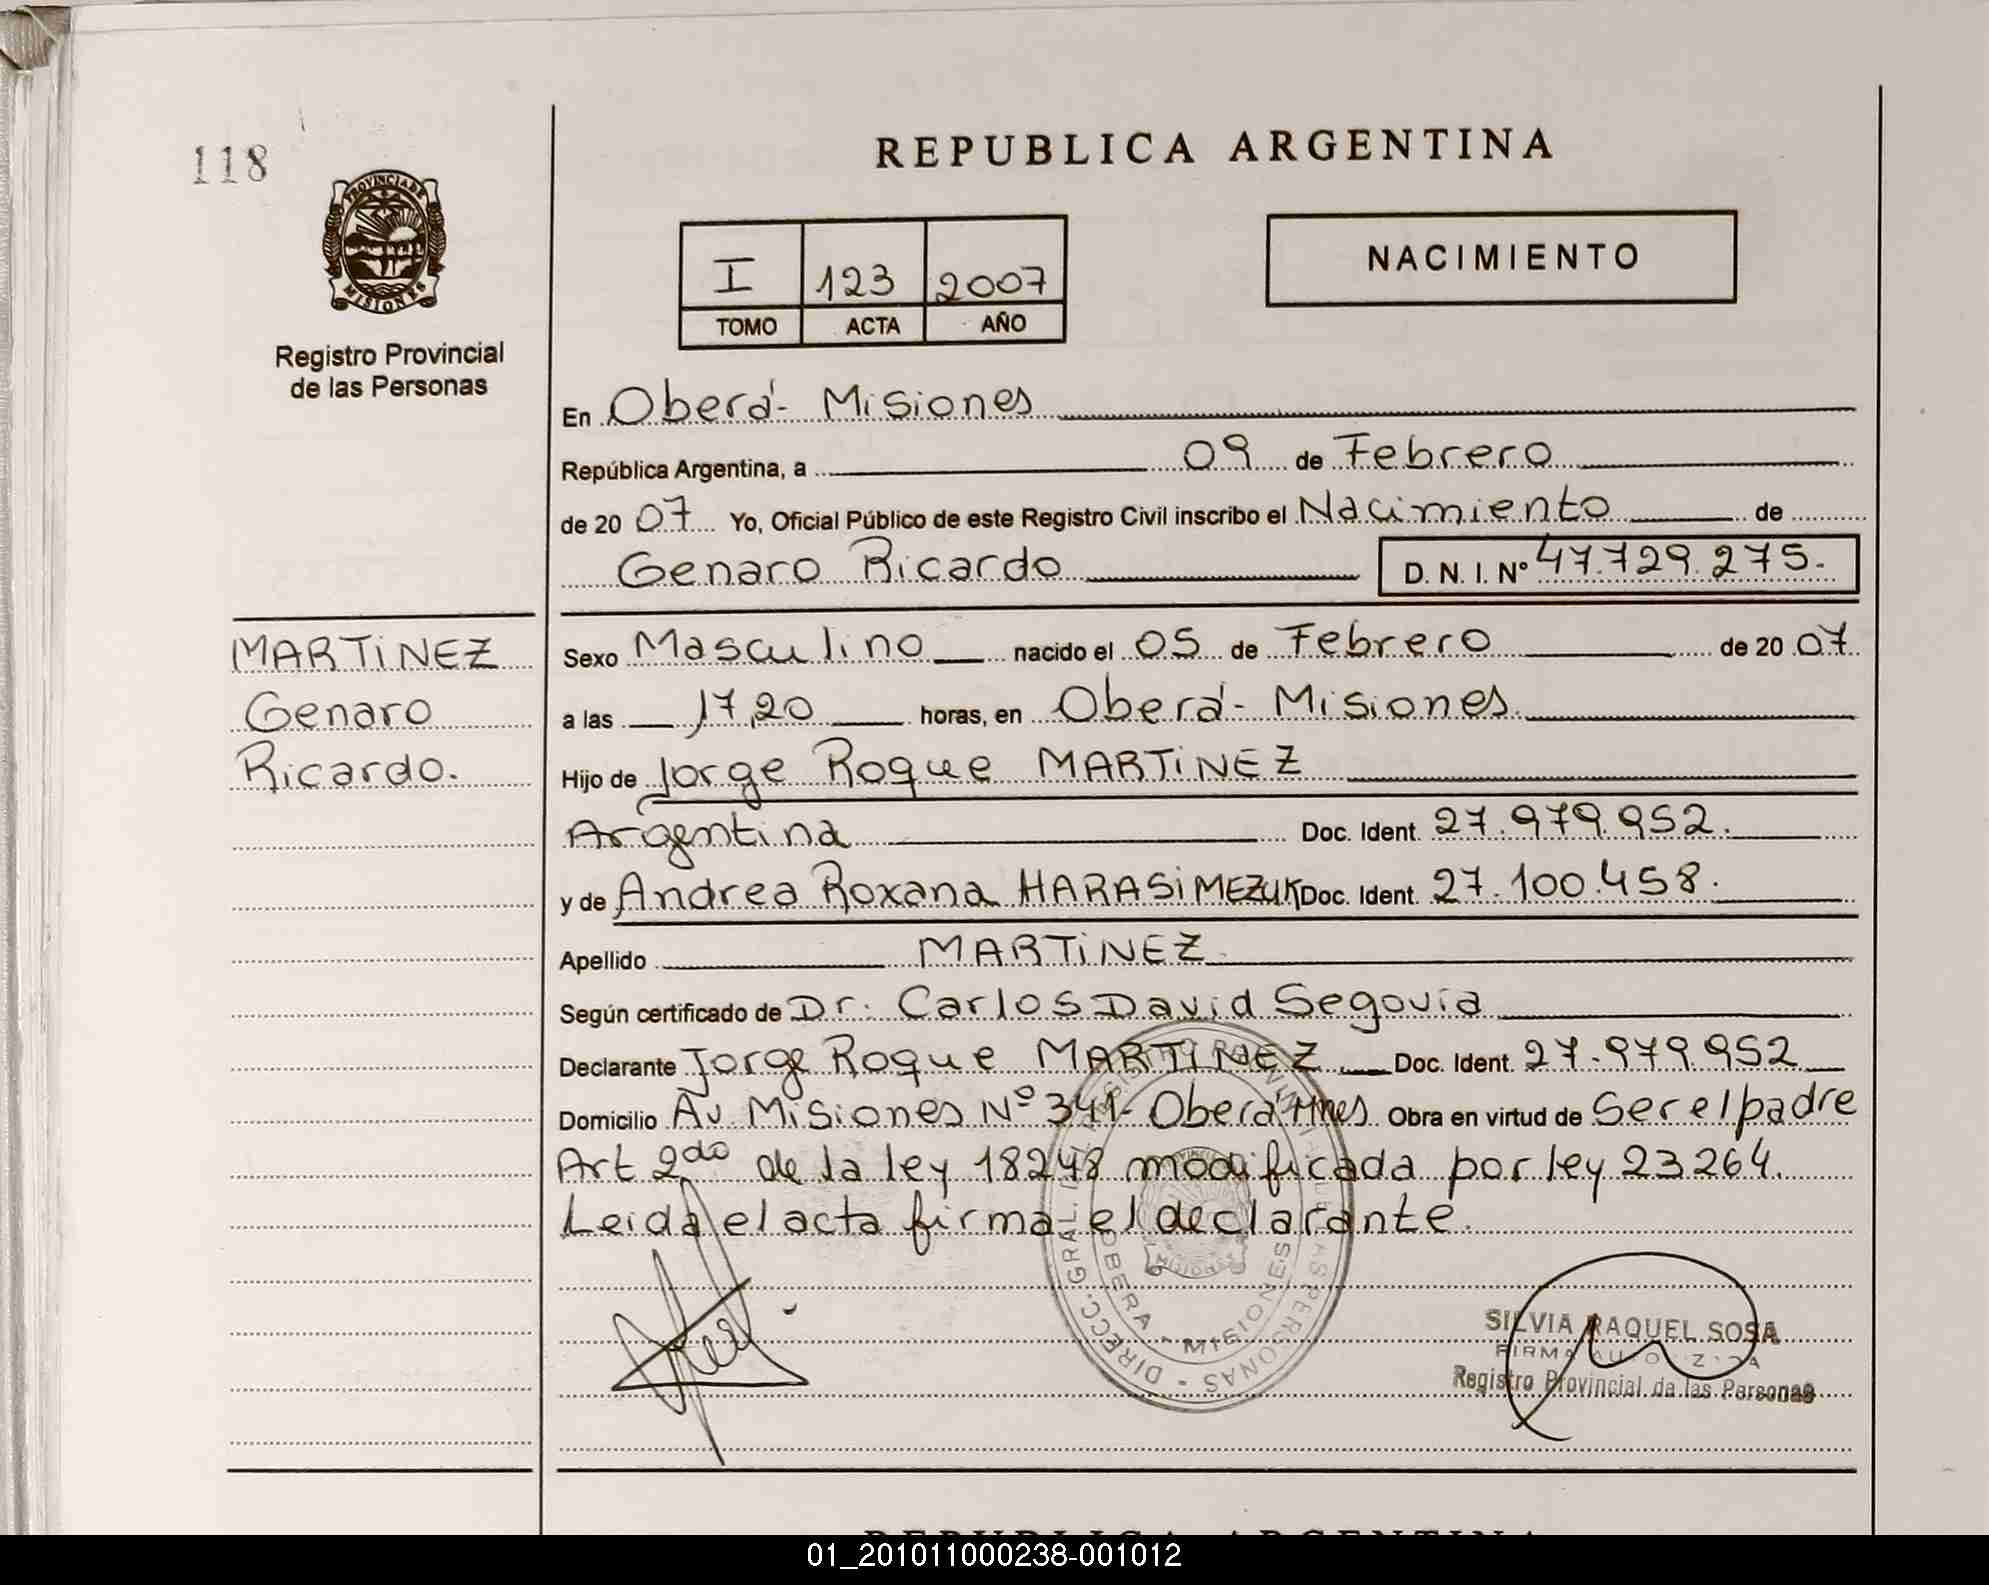 118
REPUBLICA ARGENTINA
PROVINCIA DE
MISIONES
Registro Provincial
de las Personas
I 123 2007
TOMO ACTA AÑO
NACIMIENTO
En Oberá- Misiones
República Argentina, a 09 de Febrero
de 20 07 Yo, Oficial Público de este Registro Civil inscribo el Nacimiento de
Genaro Ricardo D. N. I. Nº 47.729.275.
MARTINEZ
Genaro
Ricardo.
Sexo Masculino nacido el 05 de Febrero de 20 07
a las 17,20 horas, en Oberá- Misiones.
Hijo de Jorge Roque MARTINEZ
Argentina Doc. Ident. 27.979.952.
y de Andrea Roxana HARASIMEZUK Doc. Ident. 27.100.458.
Apellido MARTINEZ
Según certificado de Dr. Carlos David Segovia
Declarante Jorge Roque MARTINEZ Doc. Ident. 27.979.952
Domicilio Av. Misiones Nº 341- Oberá Mnes. Obra en virtud de Ser el padre
Art 2do de la ley 18248 modificada por ley 23264.
Leida el acta firma el declarante.
DIRECC. GRAL. PERSONAS
OBERA - MISIONES
SILVIA RAQUEL SOSA
FIRMA AUTORIZADA
Registro Provincial de las Personas
REPUBLICA ARGENTINA
01_201011000238-001012